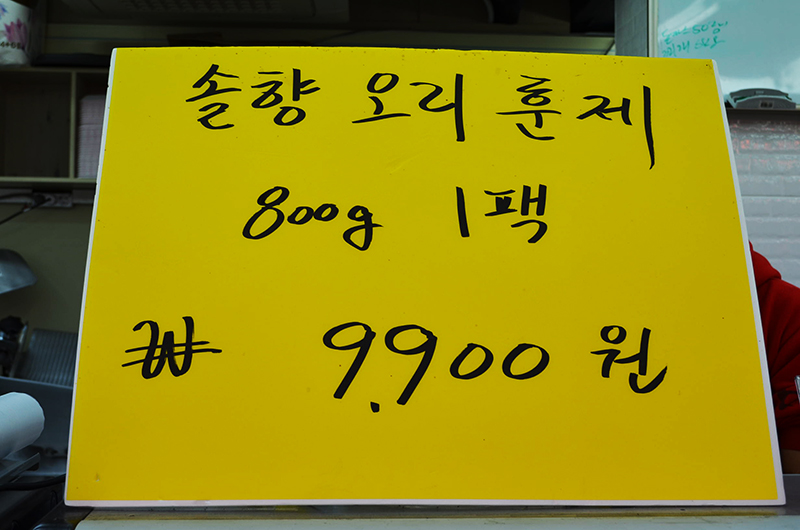 솔향 오리 훈제
800g 1팩
₩ 9,900 원